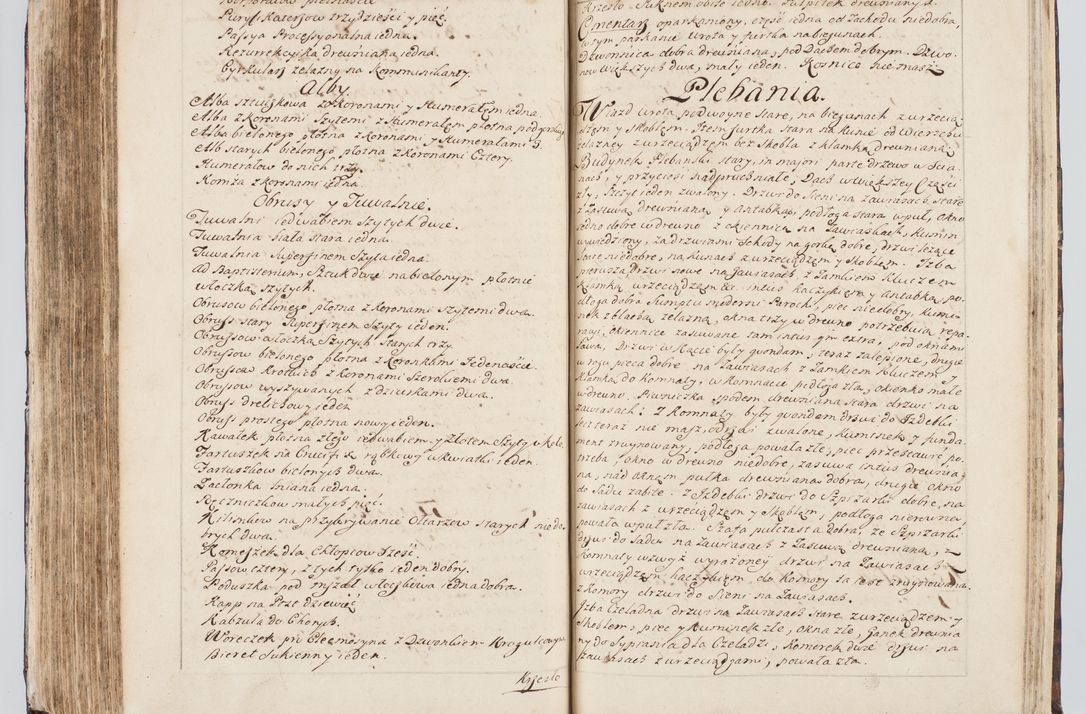 Puryfikaterzow trzydzieści y pięć.
Passya Processyonalna iedna.
Rezurrekcyika drewniana iedna.
Cyrkularz żelazny na Kommunikanty.
Alby.
Alba sztuczkowa z Koronami y Humerałem iedna.
Alba z Koronami Szytemi z Humerałem płotna
Alba bielonego płotna z Koronami y Humerałami 3.
Alb starych bielonego płotna z Koronami Cztery.
Humerałow do nich trzy.
Komża z Koronami iedna.
Obrusy y Tuwalnie.
Tuwalni iedwabiem Szytych dwie.
Tuwalnia biała stara iedna.
Tuwalnia Superfinem Szyta iedna.
Ad Baptisterium, Sztuk dwie na bielonym płotnie
włoczką Szytych.
Obrusow bielonego płotna z Koronami Szytemi dwa.
Obruss stary Superfinem Szyty ieden.
Obrussow włoczką Szytych Starych trzy.
Obrussow bielonego płotna z Koronkami Jedenaście.
Obrussow z Koronami Szerokiemi dwa.
Obrusow wyszywanych z dziurkami dwa.
Obruss drelichowy ieden
Obruss prostego płotna nowy ieden.
Kawałek płotna złego iedwabiem y złotem Szyty
Fartuszek na Crucifix rąbkowy w kwiatki ieden.
Fartuszkow bielonych dwa.
Zasłonka lniana iedna.
Ręczniczkow małych pięć.
Kilimkow na przykrywanie Ołtarzow starych niedo:
brych dwa.
Komeszek dla Chłopcow Sześć.
Passow cztery, z tych tylko ieden dobry.
Poduszka pod mszał włosciowa iedna dobra.
Kapp na Puszkę dziewięć
Kabzula do Chorych.
Woreczek pro Eleemosyna z Dzwonkiem
Biret Sukienny ieden.
Krzesło
Krzesło Suknem obite iedno. Pulpitek drewniany 1.
Cmentarz oparkaniony, część iedna od Zachodu niedobra,
w tym parkanie wrota y furtka na biegunach.
Dzwonnica dobra drewniana, pod Dachem dobrym. Dzwo:
now większych dwa, mały ieden. Kosnice nie masz
Plebania.
Wiazd wrota podwoyne Stare, na biegunach z wrzecią:
dzem y Skoblem. Item furtka stara na Kunie od wierzchu
żelazney z wrzeciądzem bez Skobla z klamką drewnianą
Budynek Plebanski stary, in majori parte drzewo w Scia:
nach, y przyciesi nadpruchniałe, Dach w większey Części
zły, Szczyt ieden zwalony. Drzwi do Sieni na zawiasach Stare
z Zasuwą drewnianą y antabką, podłoga stara w puł, okno
iedno dobre w drewno z okiennicą na Zawiasach, Kumin
wywiedziony, za drzwiami Schody na gorkę dobre, drzwi lezące
Sowe niedobre, na Kunach z wrzeciądzem y Skoblem. Izba
pierwsza, drzwi nowe na Zawiasach z Zamkiem Kluczem
klamką wrzeciądzem &c. intus haczykiem y antabką, po:
dłoga dobra Sumptu moderni Parochi, piec niedobry, Kumi:
nek z blachą żelazną, okna trzy w drewno potrzebuią repa:
racyi, okiennice zasuwane tam intus qm extra, pod oknami
Ława. Drzwi w Kącie były quondam, teraz zalepione, drugie
w rogu pieca dobre na Zawiasach z Zamkiem Kluczem
klamką do komnaty, w komnacie podłoga zła, okienko małe
w drewno. Piwniczka spodem drewniana stara drzwi na
zawiasach: Z Komnaty były quondam drzwi do Izdebki
lecz teraz nie masz, zwalone, Kuminek y funda:
ment zruynowany, podłoga powała złe, piec przestawić po:
trzeba, okno w drewno niedobre, zasuwa intus drewnia:
na, nad oknem pułka drewniana dobra, drugie okno
do Sadu zabite. Z Izdebki drzwi do Szpizarki dobre, na
zawiasach z wrzeciądzem y Skoblem, podłoga nierowna,
powała w puł zła. Szafa pulczasta dobra, ze Szpizarki
drzwi do Sadu na Zawiasach z Zasuwą drewnianą, Z
Komnaty wzwyż wyrażoney drzwi na Zawiasach z
wrzeciądzem haczykiem do Komory ta iest zruynowana.
z Komory drzwi do Sieni na Zawiasach.
Izba Czeladna drzwi na Zawiasach Stare z wrzeciądzem y
Skoblem, piec y Kuminek złe, okna złe, ganek drewnia:
ny do Sypiania dla Czeladzi, Komorek dwie drzwi na
zawiasach z wrzeciądzami, powała zła.